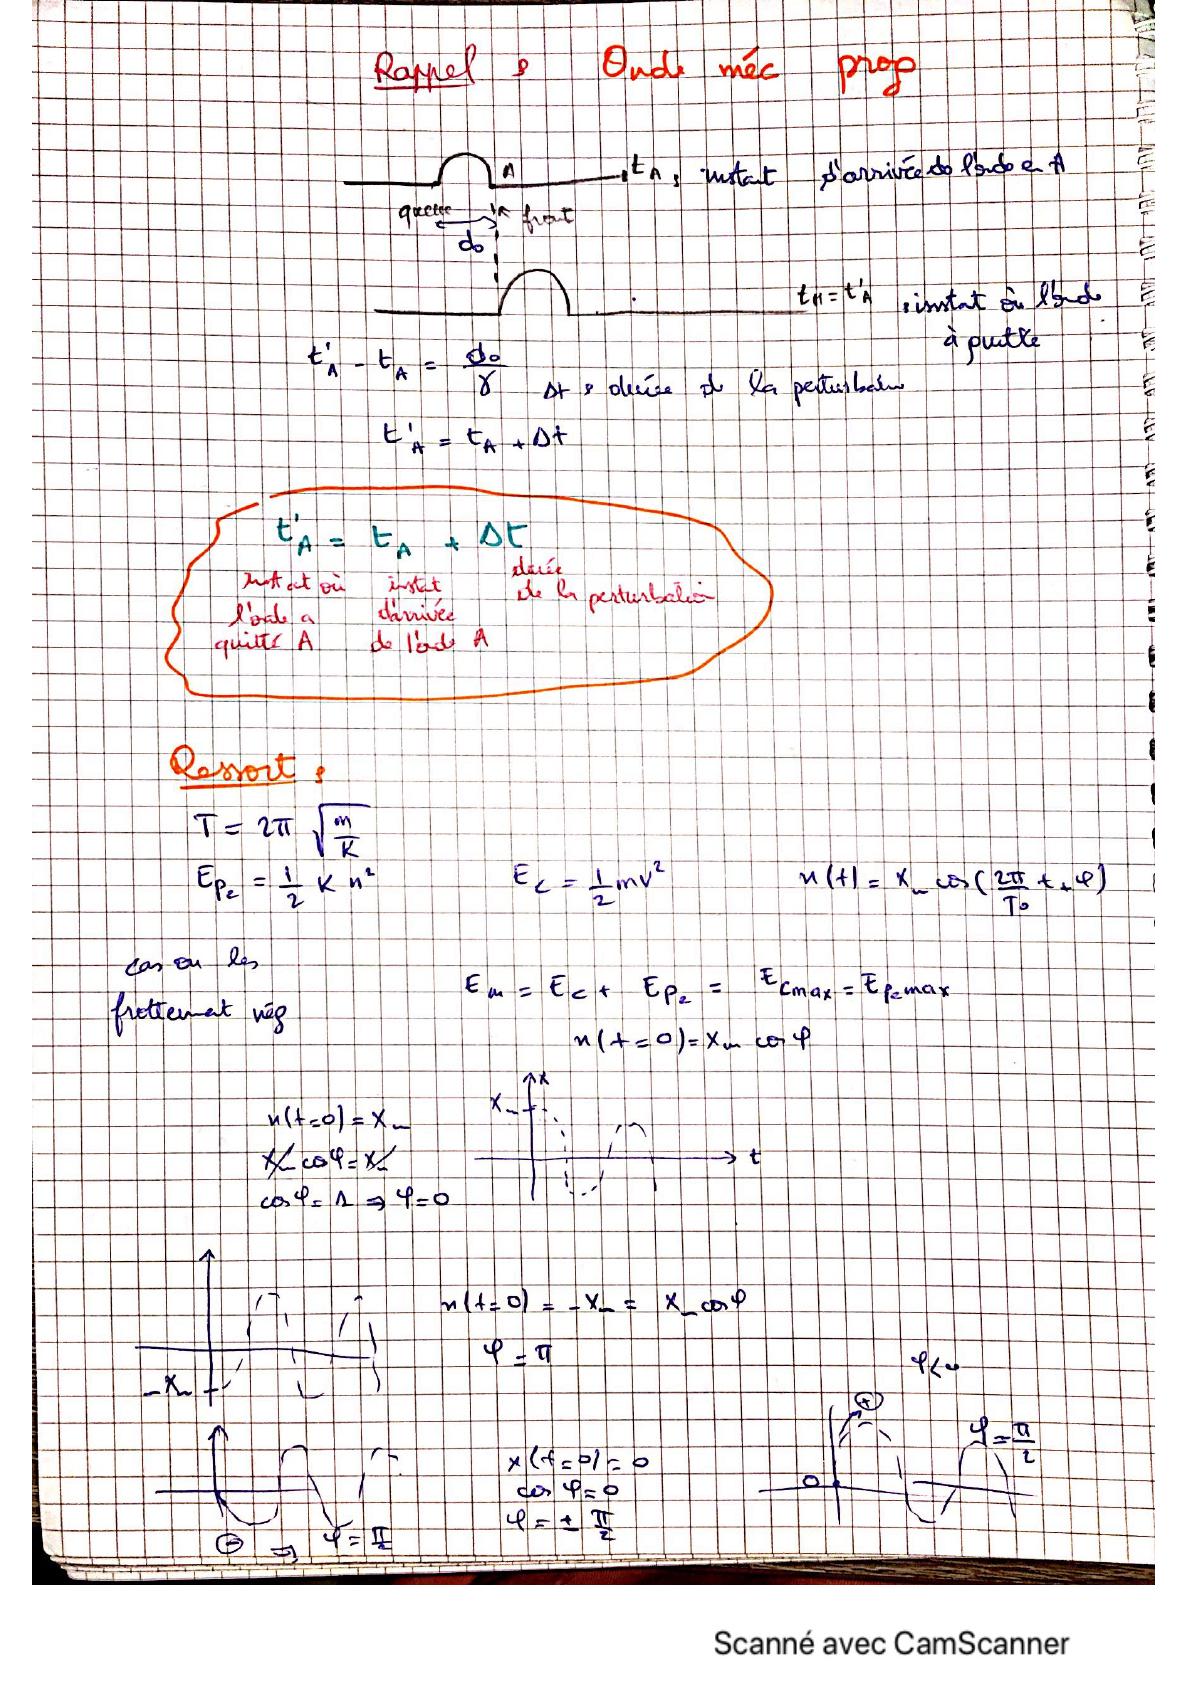 Rappel : Onde méc prop
A
t_A : instant d'arrivée de l'onde en A
queue
front
d₀
t_M = t'_A : instat où l'onde
à quitté
t'_A - t_A = d₀/γ
Δt : durée de la perturbation
t'_A = t_A + Δt
t'_A = t_A + Δt
instat où
l'onde a
quitté A
instat
d'arrivée
de l'onde A
durée
de la perturbation
Ressort :
T = 2π √(m/K)
E_Pe = 1/2 K x²
E_c = 1/2 mv²
x(t) = X_m cos(2π/T₀ t + φ)
cas ou les
frottement nég
E_m = E_c + E_Pe = E_cmax = E_Pemax
x(t=0) = X_m cos φ
x(t=0) = X_m
X_m cos φ = X_m
cos φ = 1 ⇒ φ = 0
x
X_m
t
-X_m
x(t=0) = -X_m = X_m cos φ
φ = π
φ<0
x(t=0) = 0
cos φ = 0
φ = ± π/2
⊖ ⇒ φ = π/2
⊕
0
φ = π/2
Scanné avec CamScanner